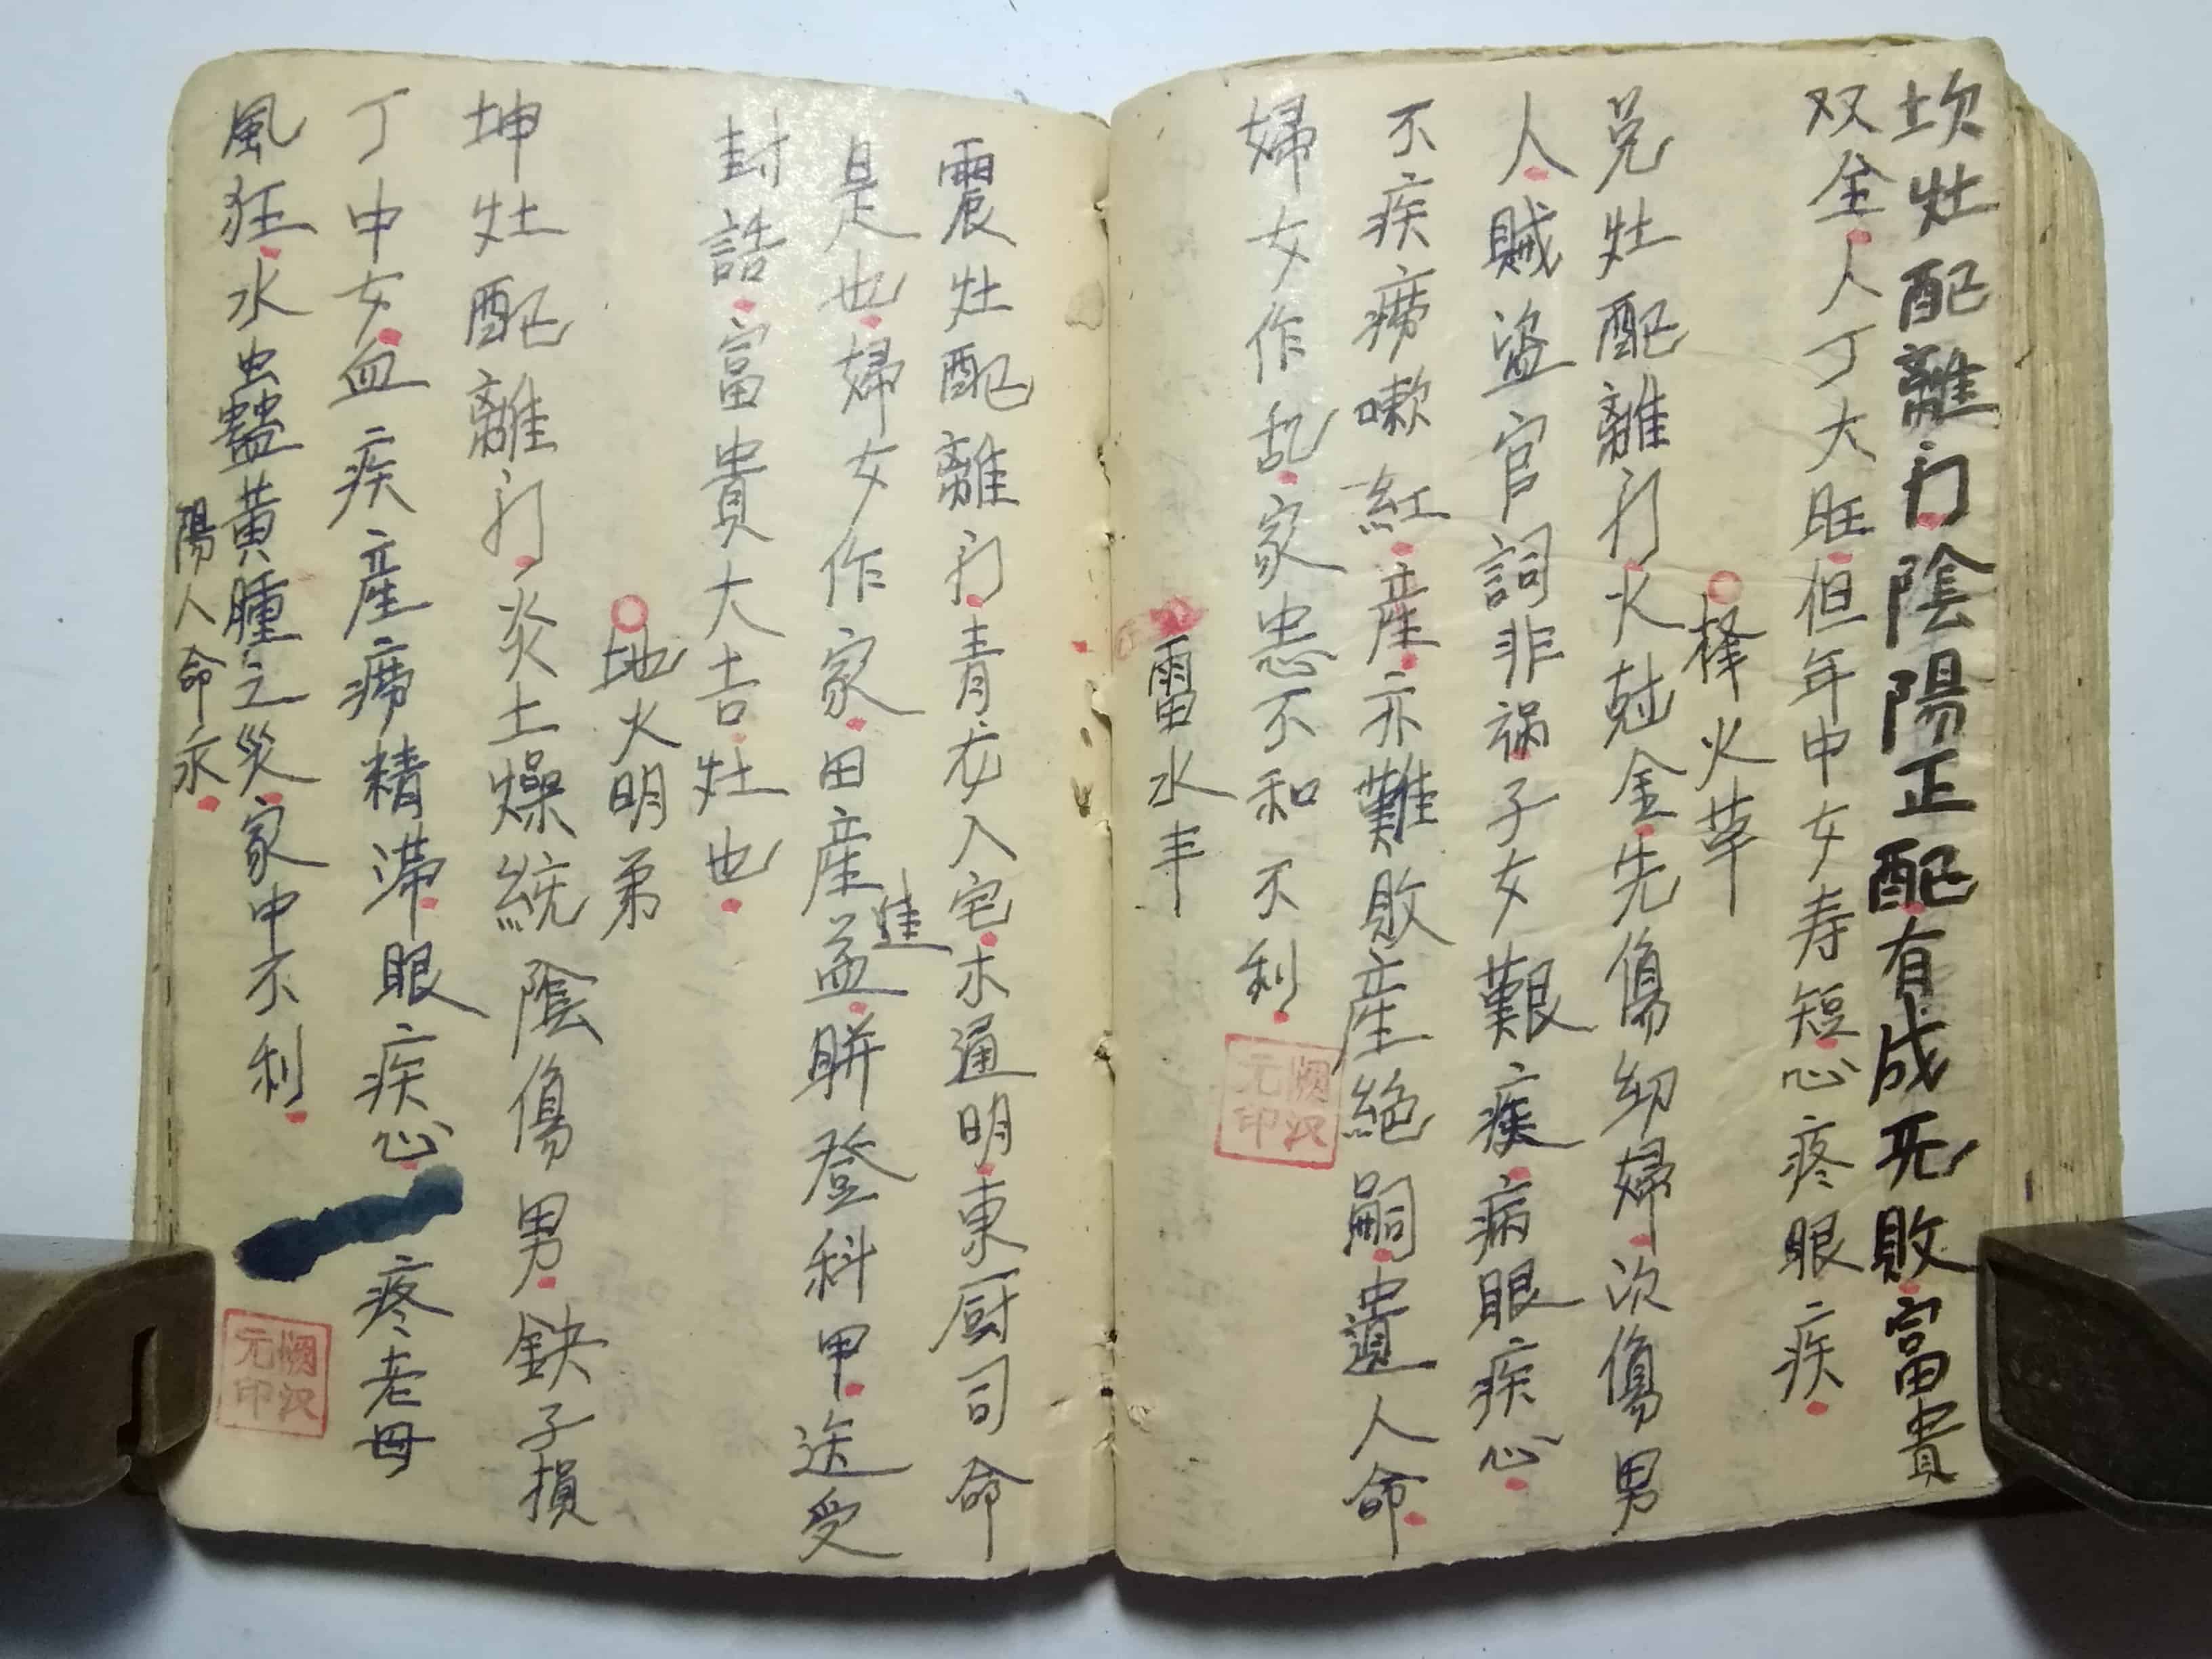 坎灶配離门陰陽正配有成无敗富貴
双全人丁大旺但年中女寿短心疼眼疾
火革
兑灶配離门火尅金先傷幼婦次傷男
人賊盗官詞非祸子女艱病眼疾心
不疾癆嗽紅產亦難敗產絕嗣遺人命
婦女作乱家患不和不利
雷水丰
顺汉元印
震灶配離门青衣入宅木通明東厨司命
是也婦女作家田産進益聯登科甲送受
封誥富貴大吉灶也
地火明弟
坤灶配離门炎土燥統陰傷男鉄子損
丁中女血疾産癆精滞眼疾心疼老母
風狂水蠱黄腫之災家中不利
陽人命永
顺汉元印